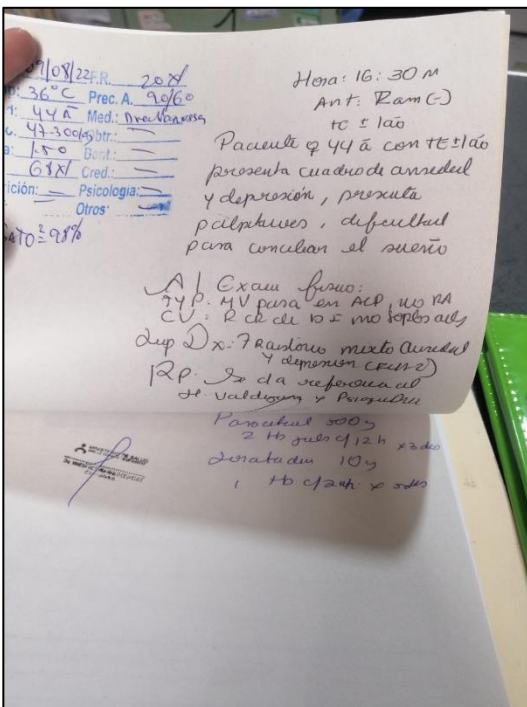 09/08/22 F.R. 20X'
36°C Prec. A. 90/60
44 ã Med.:
47.300 Obtr.: —
1.50 Dent.: —
68X' Cred.: —
rición: — Psicología: —
Otros: —
SATO2 = 98%
Hora: 16:30 M
Ant: Ram (-)
TE ± 1 año
Paciente ♀ 44 ã con TE ± 1 año
presenta cuadro de ansiedad
y depresión, presenta
palpitaciones, dificultad
para conciliar el sueño
Al Exam físico:
TYP: MV pasa en ACP, no RA
CV: RCR de no soplos
Dx: Trastorno mixto Ansiedad
y depresión
Rp. Se da referencia al
H. Valdizan y Psiquiatria
Paracetamol 500g
2 tb c/12 h x 3 dias
Loratadin 10g
1 tb c/24h x